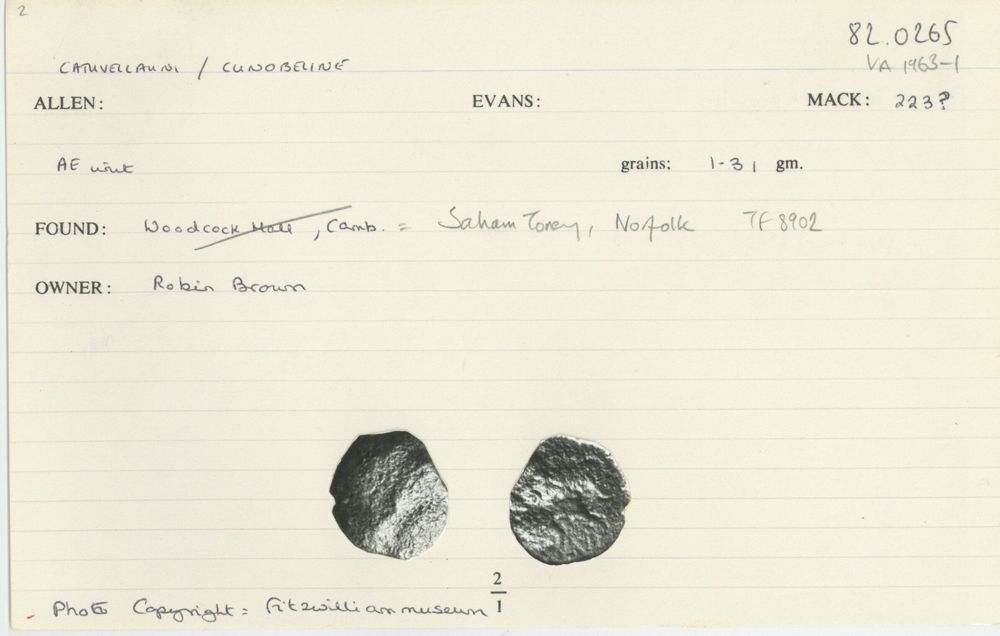 2
82.0265
CATUVELLAUNI / CUNOBELINE
VA 1963-1
ALLEN: EVANS: MACK: 223?
AE unit grains: 1.31 gm.
FOUND: Woodcock Hall, Camb. = Saham Toney, Norfolk TF8902
OWNER: Robin Brown
2
1
Photo Copyright: Fitzwilliam museum